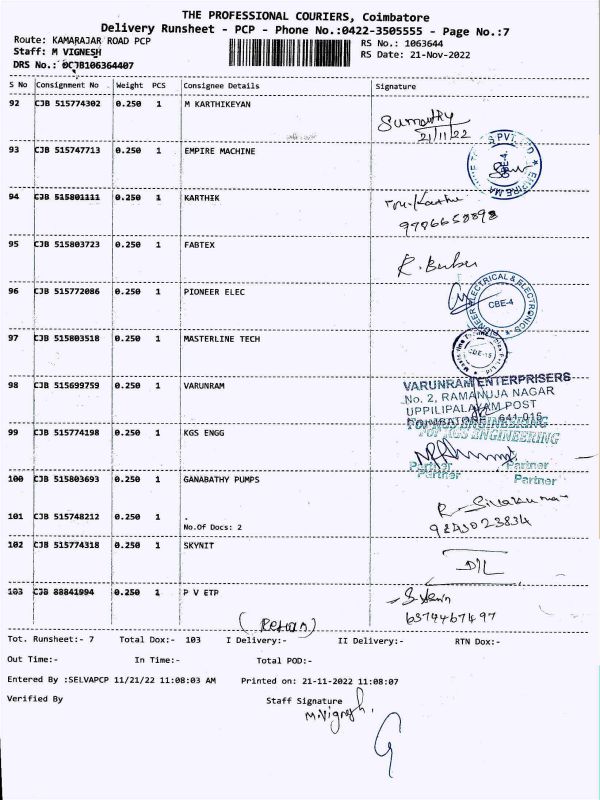 THE PROFESSIONAL COURIERS, Coimbatore
Delivery Runsheet - PCP - Phone No.:0422-3505555 - Page No.:7
Route: KAMARAJAR ROAD PCP
RS No.: 1063644
Staff: M VIGNESH
RS Date: 21-Nov-2022
DRS No.: DCJB106364407
S No Consignment No Weight PCS Consignee Details Signature
92 CJB 515774302 0.250 1 M KARTHIKEYAN
21/11/22
93 CJB 515747713 0.250 1 EMPIRE MACHINE
CBE-4
94 CJB 515801111 0.250 1 KARTHIK
95 CJB 515803723 0.250 1 FABTEX
96 CJB 515772086 0.250 1 PIONEER ELEC
PIONEER ELECTRICAL & ELECTRONICS
CBE-4
97 CJB 515803518 0.250 1 MASTERLINE TECH
98 CJB 515699759 0.250 1 VARUNRAM
VARUNRAM ENTERPRISERS
No. 2, RAMANUJA NAGAR
UPPILIPALAYAM POST
COIMBATORE 641 015
99 CJB 515774198 0.250 1 KGS ENGG
For KGS ENGINEERING
For KGS ENGINEERING
Partner Partner
Partner Partner
100 CJB 515803693 0.250 1 GANABATHY PUMPS
R. Sivakumar
101 CJB 515748212 0.250 1 .
No.Of Docs: 2
9843023834
102 CJB 515774318 0.250 1 SKYNIT
103 CJB 88841994 0.250 1 P V ETP
6374467497
(Return)
Tot. Runsheet:- 7 Total Dox:- 103 I Delivery:- II Delivery:- RTN Dox:-
Out Time:- In Time:- Total POD:-
Entered By :SELVAPCP 11/21/22 11:08:03 AM Printed on: 21-11-2022 11:08:07
Verified By Staff Signature
M.Vignesh.